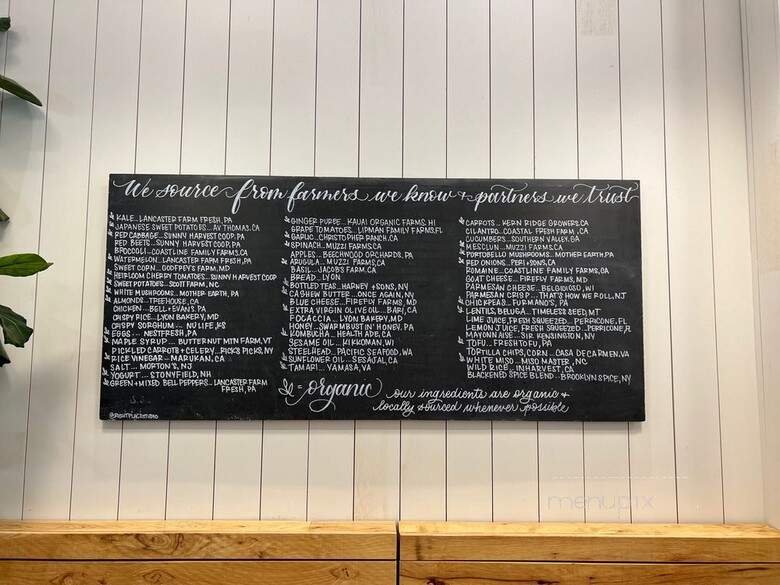 We source from farmers we know + partners we trust
KALE.. LANCASTER FARM FRESH, PA
JAPANESE SWEET POTATOES... AV THOMAS, CA
RED CABBAGE.. SUNNY HARVEST COOP, PA
RED BEETS... SUNNY HARVEST COOP, PA
BROCCOLI... COASTLINE FAMILY FARMS, CA
WATERMELON.. LANCASTER FARM FRESH, PA
SWEET CORN.. GODFREY'S FARM, MD
HEIRLOOM CHERRY TOMATOES.. SUNNY HARVEST COOP
SWEET POTATOES.. SCOTT FARM, NC
WHITE MUSHROOMS.. MOTHER EARTH, PA
ALMONDS.. TREEHOUSE, CA
CHICKEN.. BELL + EVANS, PA
CRISPY RICE.. LYON BAKERY, MD
CRISPY SORGHUM... NU LIFE, KS
EGGS... NESTFRESH, PA
MAPLE SYRUP... BUTTERNUT MTN FARM, VT
PICKLED CARROT + CELERY.. RICK'S PICKS, NY
RICE VINEGAR.. MARUKAN, CA
SALT... MORTON'S, NJ
YOGURT... STONYFIELD, NH
GREEN + MIXED BELL PEPPERS.. LANCASTER FARM
FRESH, PA
GINGER PUREE.. KAUAI ORGANIC FARMS, HI
GRAPE TOMATOES.. LIPMAN FAMILY FARMS, FL
GARLIC.. CHRISTOPHER RANCH, CA
SPINACH.. MUZZI FARMS, CA
APPLES... BEECHWOOD ORCHARDS, PA
ARUGULA.. MUZZI FARMS, CA
BASIL.. JACOBS FARM, CA
BREAD.. LYON
BOTTLED TEAS.. HARNEY + SONS, NY
CASHEW BUTTER... ONCE AGAIN, NY
BLUE CHEESE... FIREFLY FARMS, MD
EXTRA VIRGIN OLIVE OIL.. BARI, CA
FOCACCIA.. LYON BAKERY, MD
HONEY.. SWARMBUSTIN' HONEY, PA
KOMBUCHA.. HEALTH ADE, CA
SESAME OIL... KIKKOMAN, WI
STEELHEAD.. PACIFIC SEAFOOD, WA
SUNFLOWER OIL... SESAJAL, CA
TAMARI.. YAMASA, VA
= organic
our ingredients are organic +
locally sourced whenever possible
CARROTS.. KERN RIDGE GROWERS, CA
CILANTRO.. COASTAL FRESH FARM, CA
CUCUMBERS.. SOUTHERN VALLEY, GA
MESCLUN.. MUZZI FARMS, CA
PORTOBELLO MUSHROOMS.. MOTHER EARTH, PA
RED ONIONS.. PERI + SONS, CA
ROMAINE.. COASTLINE FAMILY FARMS, CA
GOAT CHEESE.. FIREFLY FARMS, MD
PARMESAN CHEESE.. BELGIOIOSO, WI
PARMESAN CRISP... THAT'S HOW WE ROLL, NJ
CHICKPEAS.. FURMANO'S, PA
LENTILS, BELUGA.. TIMELESS SEED, MT
LIME JUICE, FRESH SQUEEZED.. PERRICONE, FL
LEMON JUICE, FRESH SQUEEZED.. PERRICONE, FL
MAYONNAISE.. SIR KENSINGTON, NY
TOFU.. FRESH TOFU, PA
TORTILLA CHIPS, CORN.. CASA DE CARMEN, VA
WHITE MISO.. MISO MASTER, NC
WILD RICE... INHARVEST, CA
BLACKENED SPICE BLEND.. BROOKLYN SPICE, NY
menupix